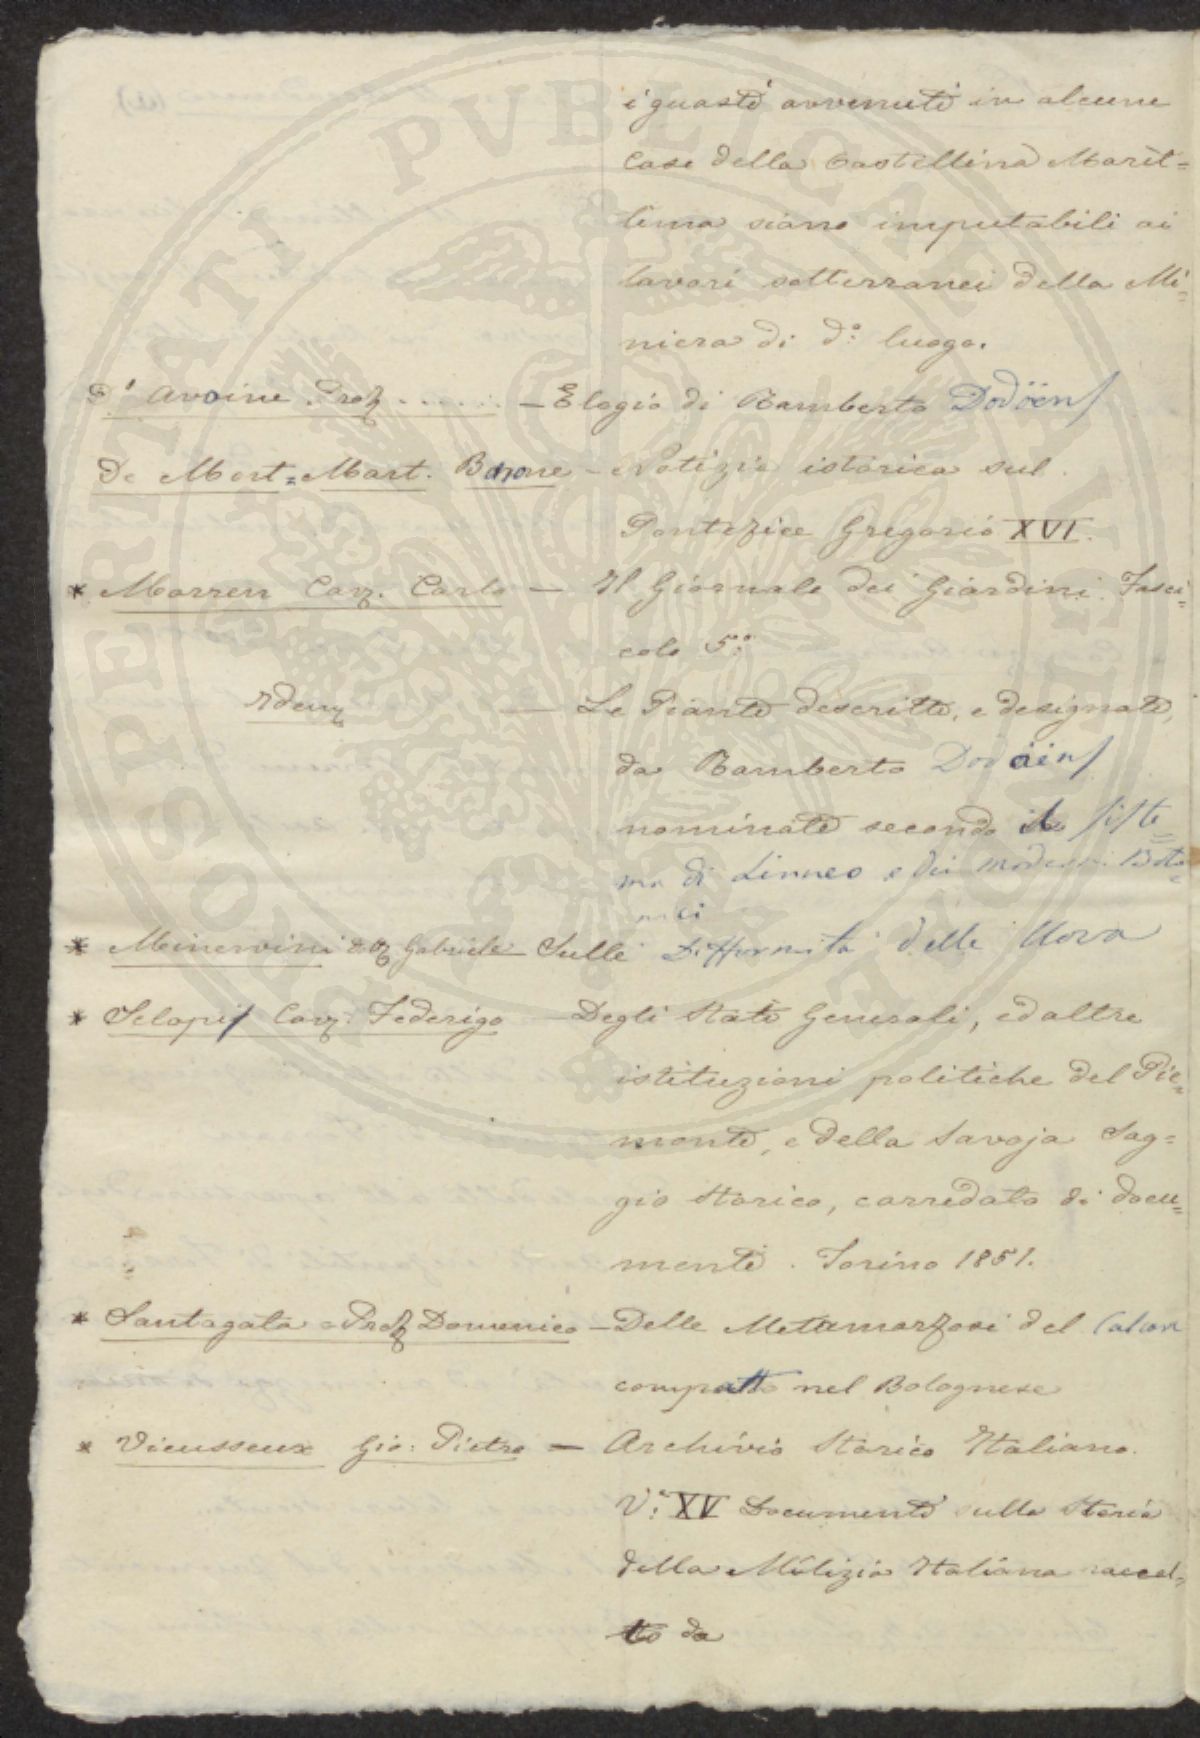 i guasti avvenuti in alcune
Case della Castellina Marit=
tima siano imputabili ai
lavori sotterranei della Mi=
niera di d.° luogo.
D'Avoine Prof. ...... — Elogio di Ramberto Dodöens
De Mort=Mart. Barone — Notizia istorica sul
Pontefice Gregorio XVI.
* Morren Cav. Carlo — Il Giornale dei Giardini. Fasci=
colo 5.°
Idem — Le Piante descritte, e designate,
da Ramberto Dodöens
nominate secondo il siste=
ma di Linneo e dei moderni Bota=
nici
* Minervini Gabriele — Sulle Difformità delle Uova
* Sclopis Cav. Federigo — Degli Stati Generali, ed altre
istituzioni politiche del Pie=
monte, e della Savoja Sag=
gio Storico, corredato di docu=
menti. Torino 1851.
* Santagata Prof. Domenico — Delle Metamorfosi del Calcare
compatto nel Bolognese
* Vieusseux Gio: Pietro — Archivio Storico Italiano.
V.° XV Documenti sulla Storia
della Milizia Italiana raccol=
to da
PVBLICAE
PROSPERITATI